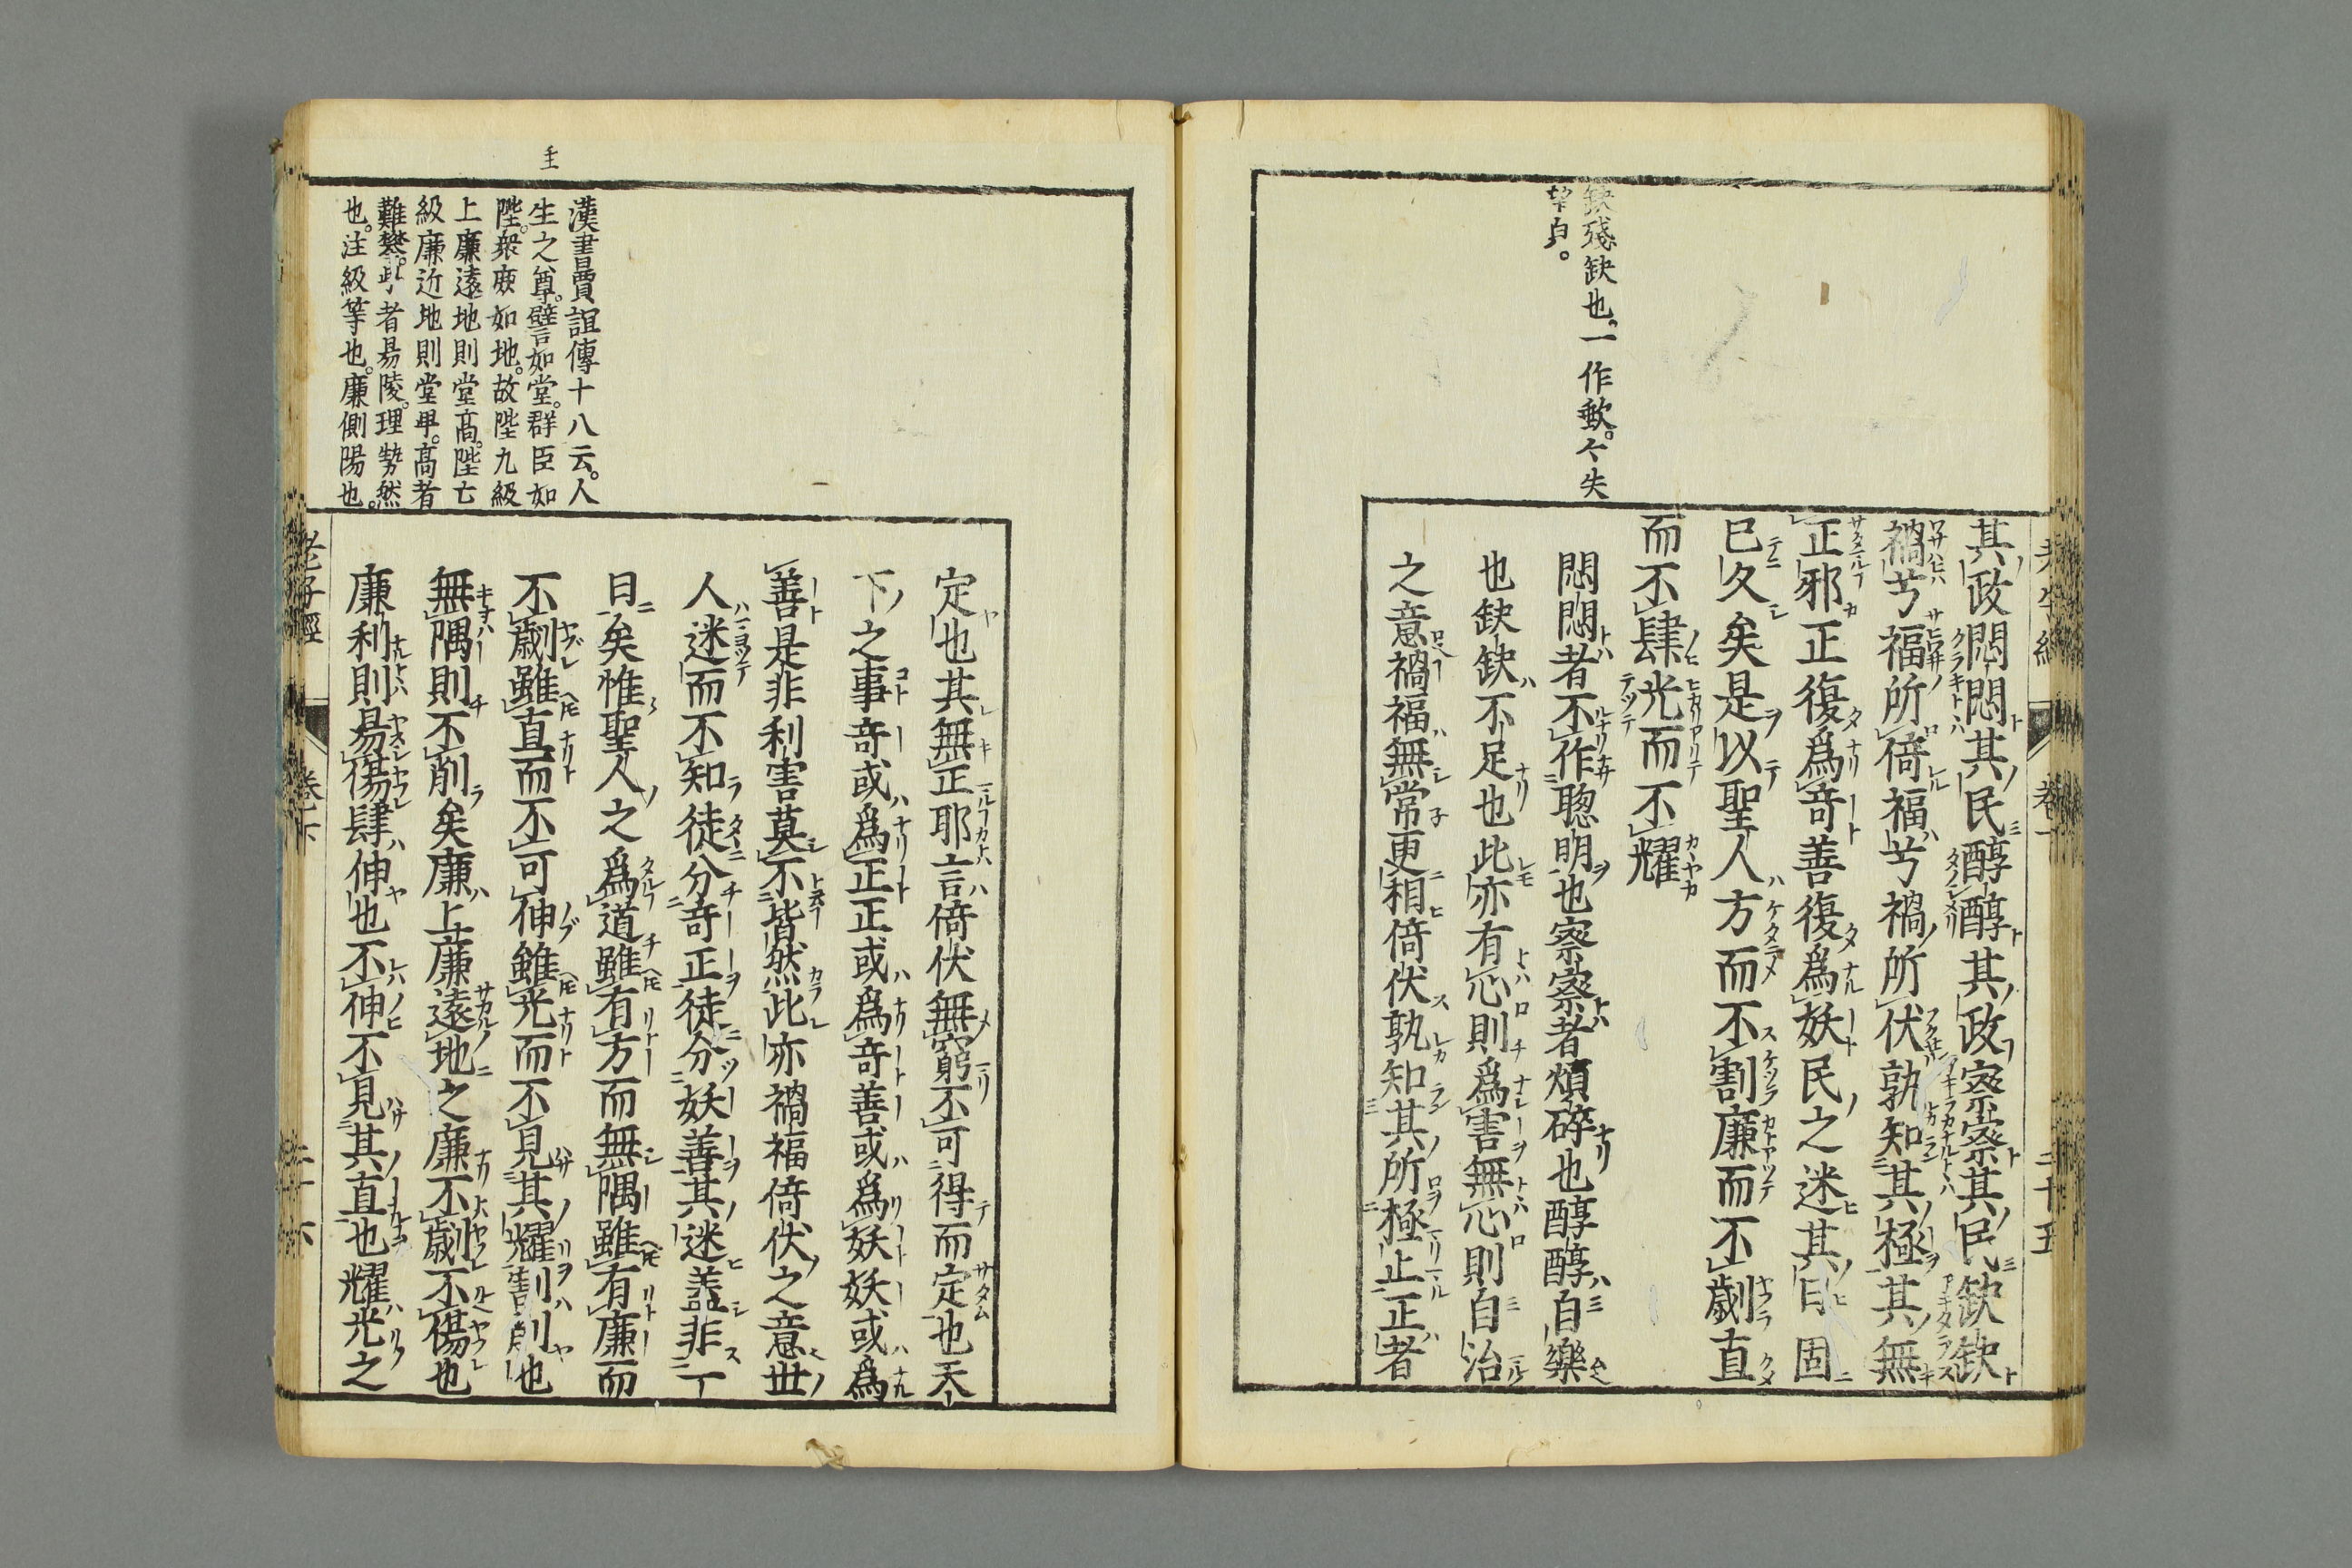 缺殘缺也。一作歎。令失
望皃。
其政悶悶其民醇醇其政察察其民缺缺
禍兮福所倚福兮禍所伏孰知其極其無
正邪正復爲奇善復爲妖民之迷其日固
已久矣是以聖人方而不割廉而不劌直
而不肆光而不耀
悶悶者不作聰明也察察者煩碎也醇醇自樂
也缺缺不足也此亦有心則爲害無心則自治
之意禍福無常更相倚伏孰知其所極止正者
老子經
二十五
漢書賈誼傳十八云。人
生之尊。譬如堂。群臣如
陛。衆庶如地。故陛九級
上廉遠地則堂高。陛亡
級廉近地則堂卑。高者
難攀。卑者易陵。理勢然
也。注級等也。廉側隅也。
定也其無正耶言倚伏無窮不可得而定也天
下之事奇或爲正正或爲奇善或爲妖妖或爲
善是非利害莫不皆然此亦禍福倚伏之意世
人迷而不知徒分奇正徒分妖善其迷蓋非一
日矣惟聖人之爲道雖有方而無隅雖有廉而
不劌雖直而不可伸雖光而不見其耀割削也
無隅則不削矣廉上廉遠地之廉不劌不傷也
廉利則易傷肆伸也不伸不見其直也耀光之
老子經
卷下